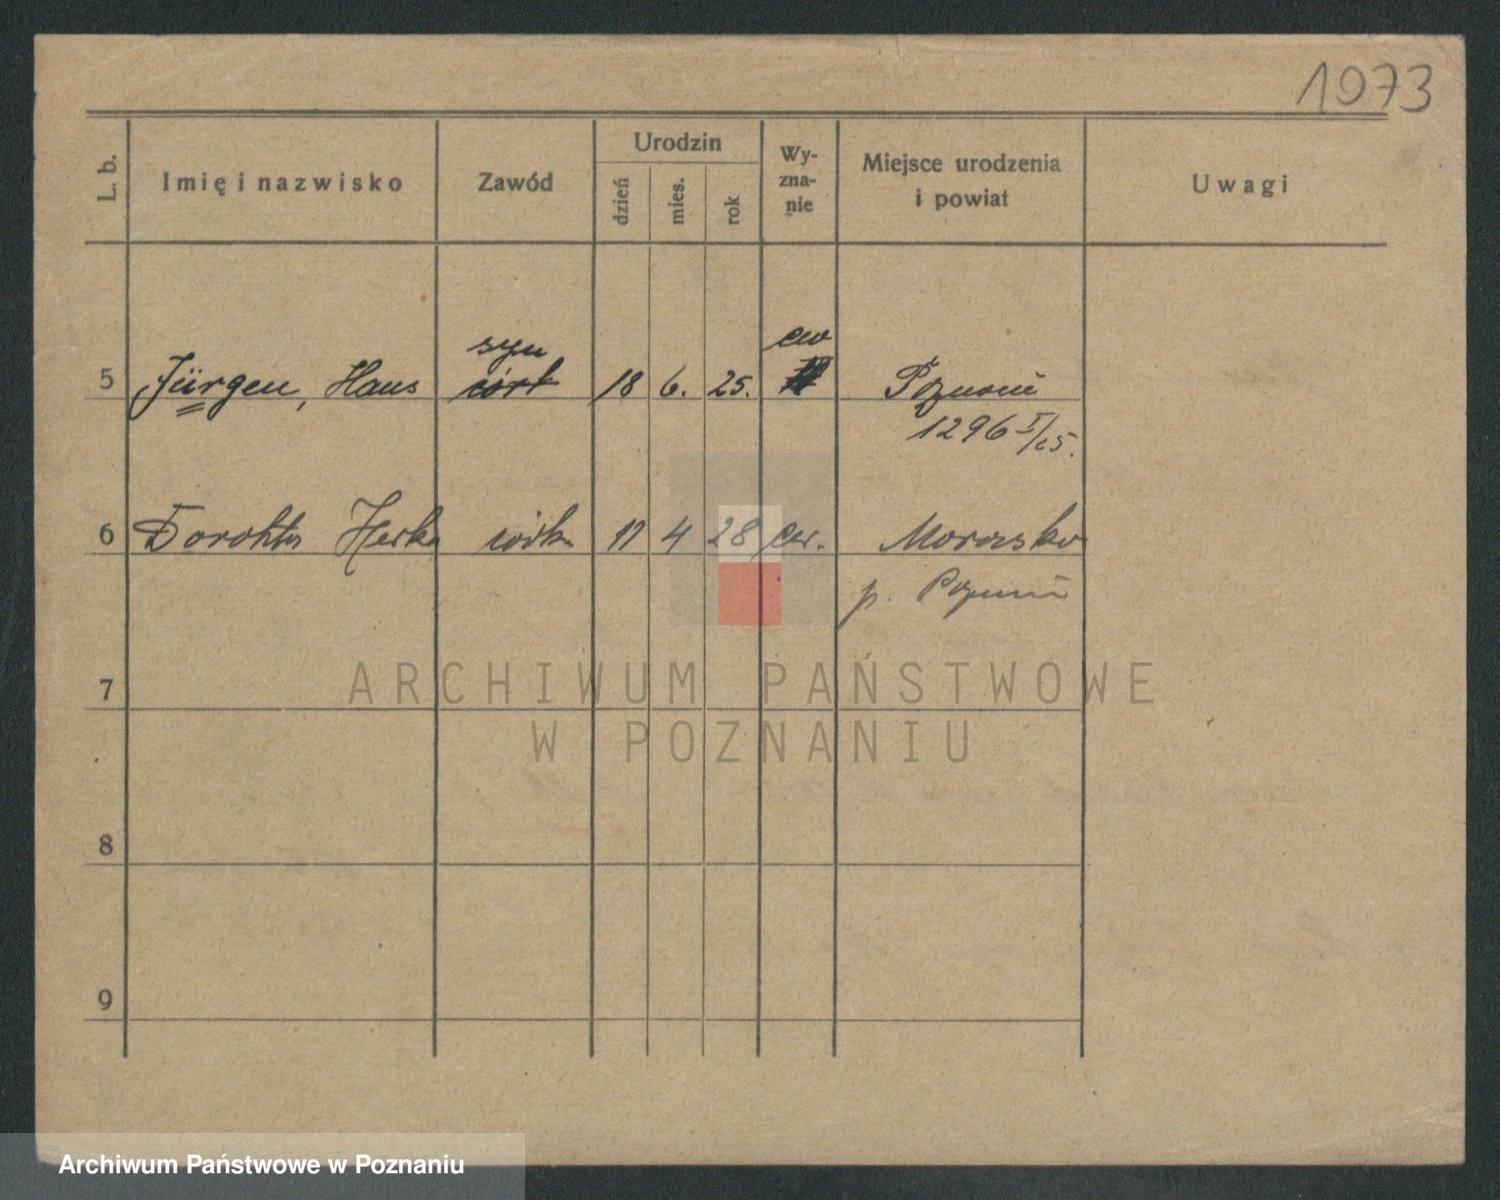 1973
L. b.
Imię i nazwisko
Zawód
Urodzin
dzień
mies.
rok
Wy-
zna-
nie
Miejsce urodzenia
i powiat
Uwagi
syn
ew
5 Jürgen, Hans córk 18 6. 25. Poznań
1296 I/25.
6 córka 11 4 28 ew. Morasko
p. Poznań
7
8
9
ARCHIWUM PAŃSTWOWE
W POZNANIU
Archiwum Państwowe w Poznaniu